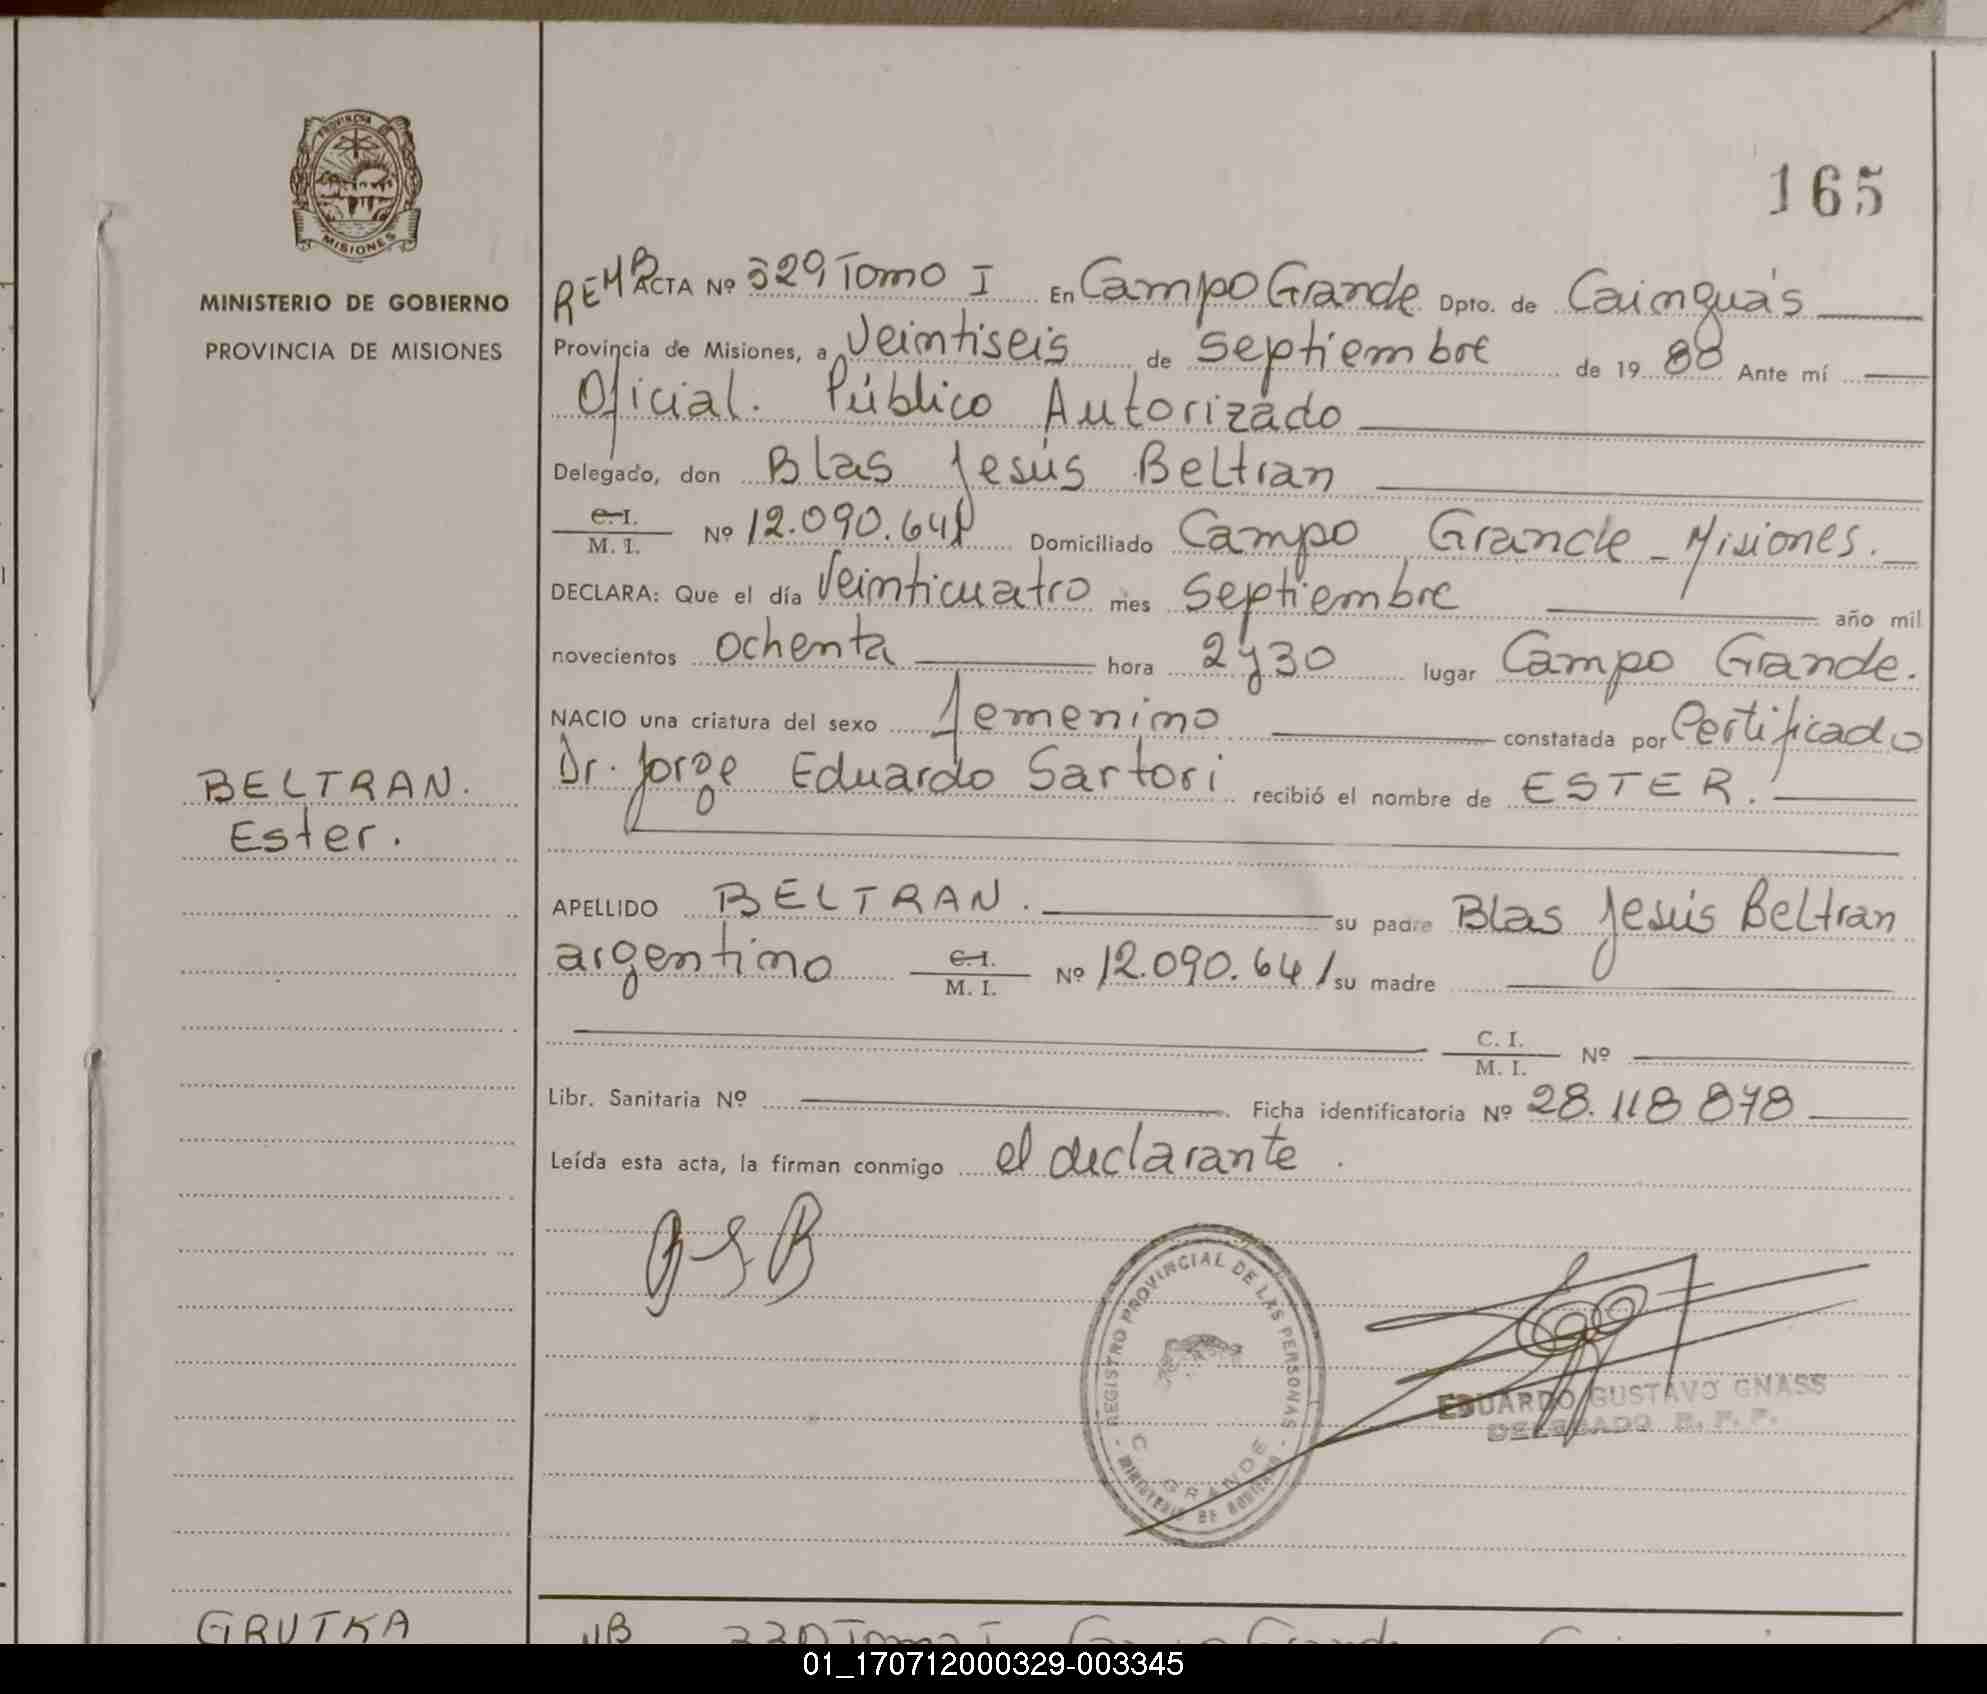 165
PROVINCIA DE
MISIONES
MINISTERIO DE GOBIERNO
PROVINCIA DE MISIONES
REMB ACTA Nº 329, Tomo I En Campo Grande Dpto. de Cainguás
Provincia de Misiones, a Veintiseis de Septiembre de 19 80 Ante mí
Oficial. Público Autorizado
Delegado, don Blas Jesús Beltran
C. I.
M. I. Nº 12.090.641 Domiciliado Campo Grande - Misiones.
DECLARA: Que el día Veinticuatro mes Septiembre año mil
novecientos Ochenta hora 2 y 30 lugar Campo Grande.
NACIO una criatura del sexo femenino constatada por Certificado
Dr. Jorge Eduardo Sartori recibió el nombre de ESTER.
BELTRAN.
Ester.
APELLIDO BELTRAN. su padre Blas Jesús Beltran
argentino C. I.
M. I. Nº 12.090.641 su madre
C. I.
M. I. Nº
Libr. Sanitaria Nº Ficha identificatoria Nº 28.118 878
Leída esta acta, la firman conmigo el declarante.
BJB
REGISTRO PROVINCIAL DE LAS PERSONAS
C. GRANDE
MINISTERIO DE GOBIERNO
EDUARDO GUSTAVO GNASS
DELEGADO R. P. P.
GRUTKA
330 Tomo I Campo Grande
01_170712000329-003345